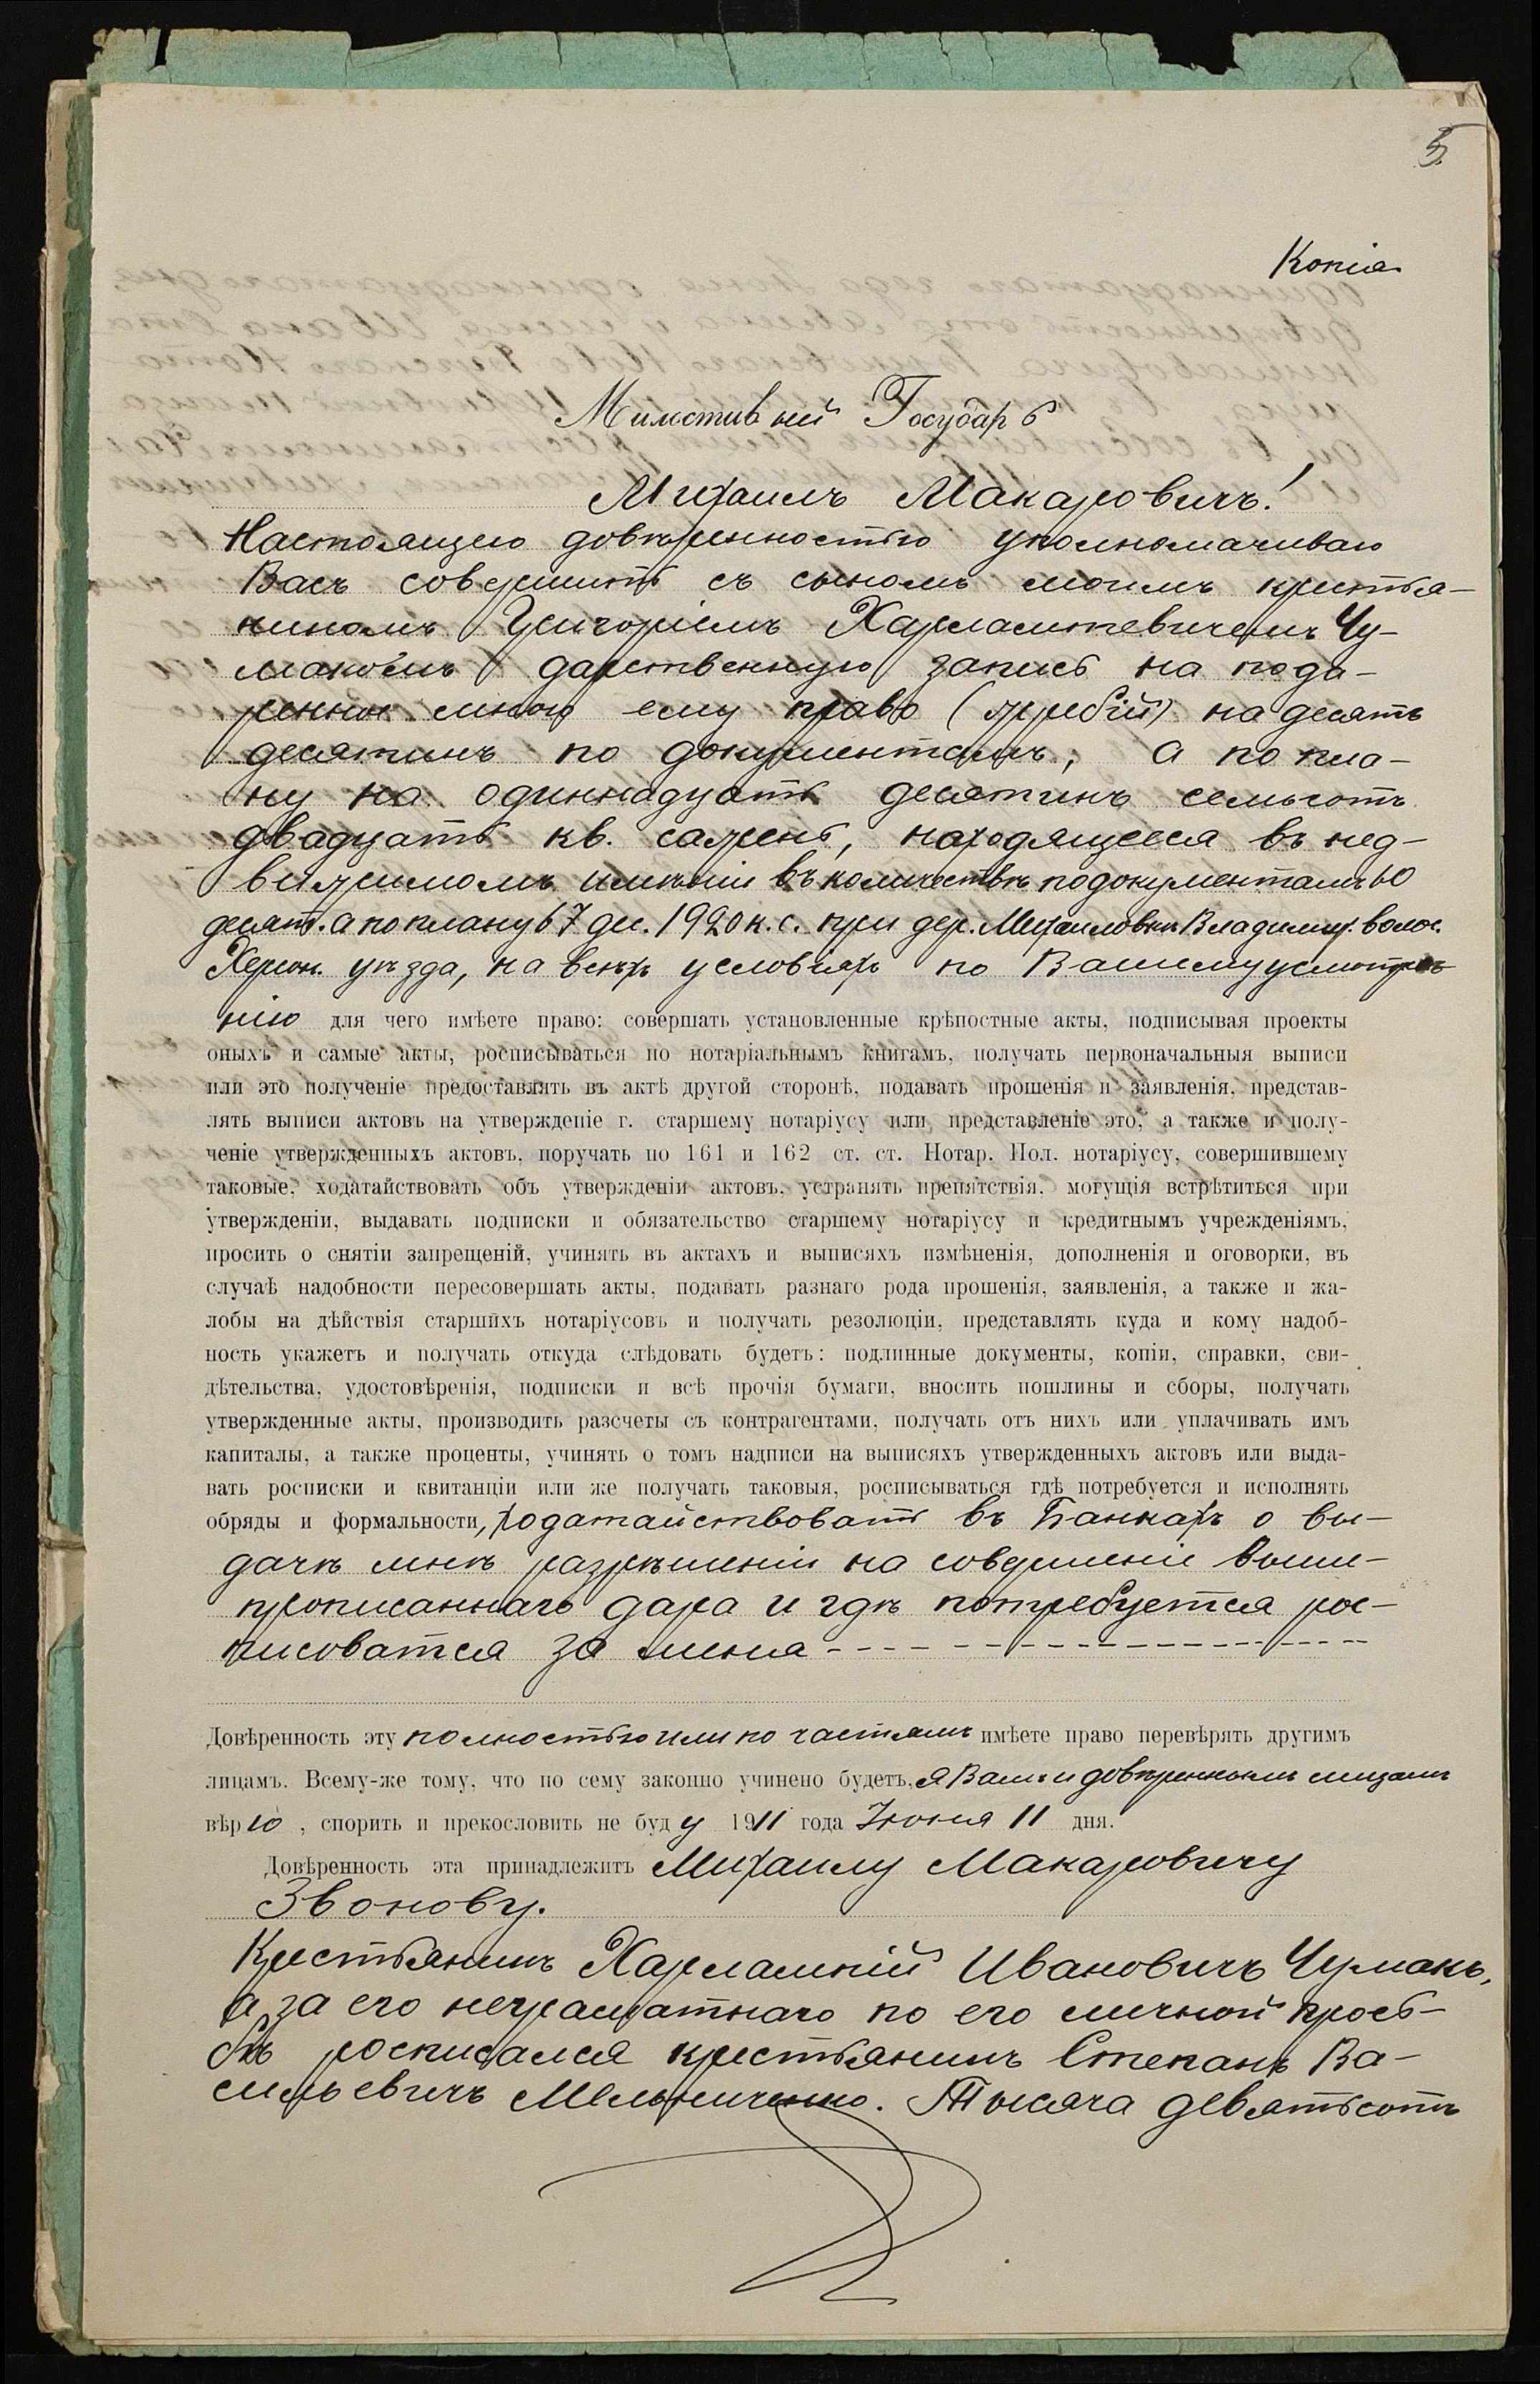 5
Копія
Милостивый Государь
Михаилъ Макаровичъ!
Настоящею довѣренностью уполномачиваю
Васъ совершить съ сыномъ моимъ крестья-
ниномъ Григоріемъ Харлампіевичемъ Чу-
макомъ дарственную запись на пода-
ренное мною ему право (жребій) на десять
десятинъ по документамъ, а по пла-
ну на одиннадцать десятинъ семьсотъ
двадцать кв. сажень, находящееся въ нед-
вижимомъ имѣніи въ количествѣ по документамъ 60
десят. а по плану 67 дес. 1920 к. с. при дер. Михайловкѣ Владимір. волос.
Херсон. уѣзда, на всѣхъ условіяхъ по Вашему усмотрѣ-
нію для чего имѣете право: совершать установленные крѣпостные акты, подписывая проекты
оныхъ и самые акты, росписываться по нотаріальнымъ книгамъ, получать первоначальныя выписи
или это полученіе предоставлять въ актѣ другой сторонѣ, подавать прошенія и заявленія, представ-
лять выписи актовъ на утвержденіе г. старшему нотаріусу или представленіе это, а также и полу-
ченіе утвержденныхъ актовъ, поручать по 161 и 162 ст. ст. Нотар. Пол. нотаріусу, совершившему
таковые, ходатайствовать объ утвержденіи актовъ, устранять препятствія, могущія встрѣтиться при
утвержденіи, выдавать подписки и обязательство старшему нотаріусу и кредитнымъ учрежденіямъ,
просить о снятіи запрещеній, учинять въ актахъ и выписяхъ измѣненія, дополненія и оговорки, въ
случаѣ надобности пересовершать акты, подавать разнаго рода прошенія, заявленія, а также и жа-
лобы на дѣйствія старшихъ нотаріусовъ и получать резолюціи, представлять куда и кому надоб-
ность укажетъ и получать откуда слѣдовать будетъ: подлинные документы, копіи, справки, сви-
дѣтельства, удостовѣренія, подписки и всѣ прочія бумаги, вносить пошлины и сборы, получать
утвержденные акты, производить разсчеты съ контрагентами, получать отъ нихъ или уплачивать имъ
капиталы, а также проценты, учинять о томъ надписи на выписяхъ утвержденныхъ актовъ или выда-
вать росписки и квитанціи или же получать таковыя, росписываться гдѣ потребуется и исполнять
обряды и формальности, ходатайствовать въ Банкахъ о вы-
дачѣ мнѣ разрѣшенія на совершеніе выше-
прописаннаго дара и гдѣ потребуется рос-
писоватся за меня
Довѣренность эту полностью или по частямъ имѣете право перевѣрять другимъ
лицамъ. Всему-же тому, что по сему законно учинено будетъ, я Вамъ и довѣреннымъ лицамъ
вѣрю, спорить и прекословить не буду 1911 года Іюня 11 дня.
Довѣренность эта принадлежитъ Михаилу Макаровичу
Звонову.
Крестьянинъ Харлампій Ивановичъ Чумакъ,
а за его неграмотнаго по его личной прось-
бѣ росписался крестьянинъ Степанъ Ва-
сильевичъ Мельниченко. Тысяча девятьсотъ